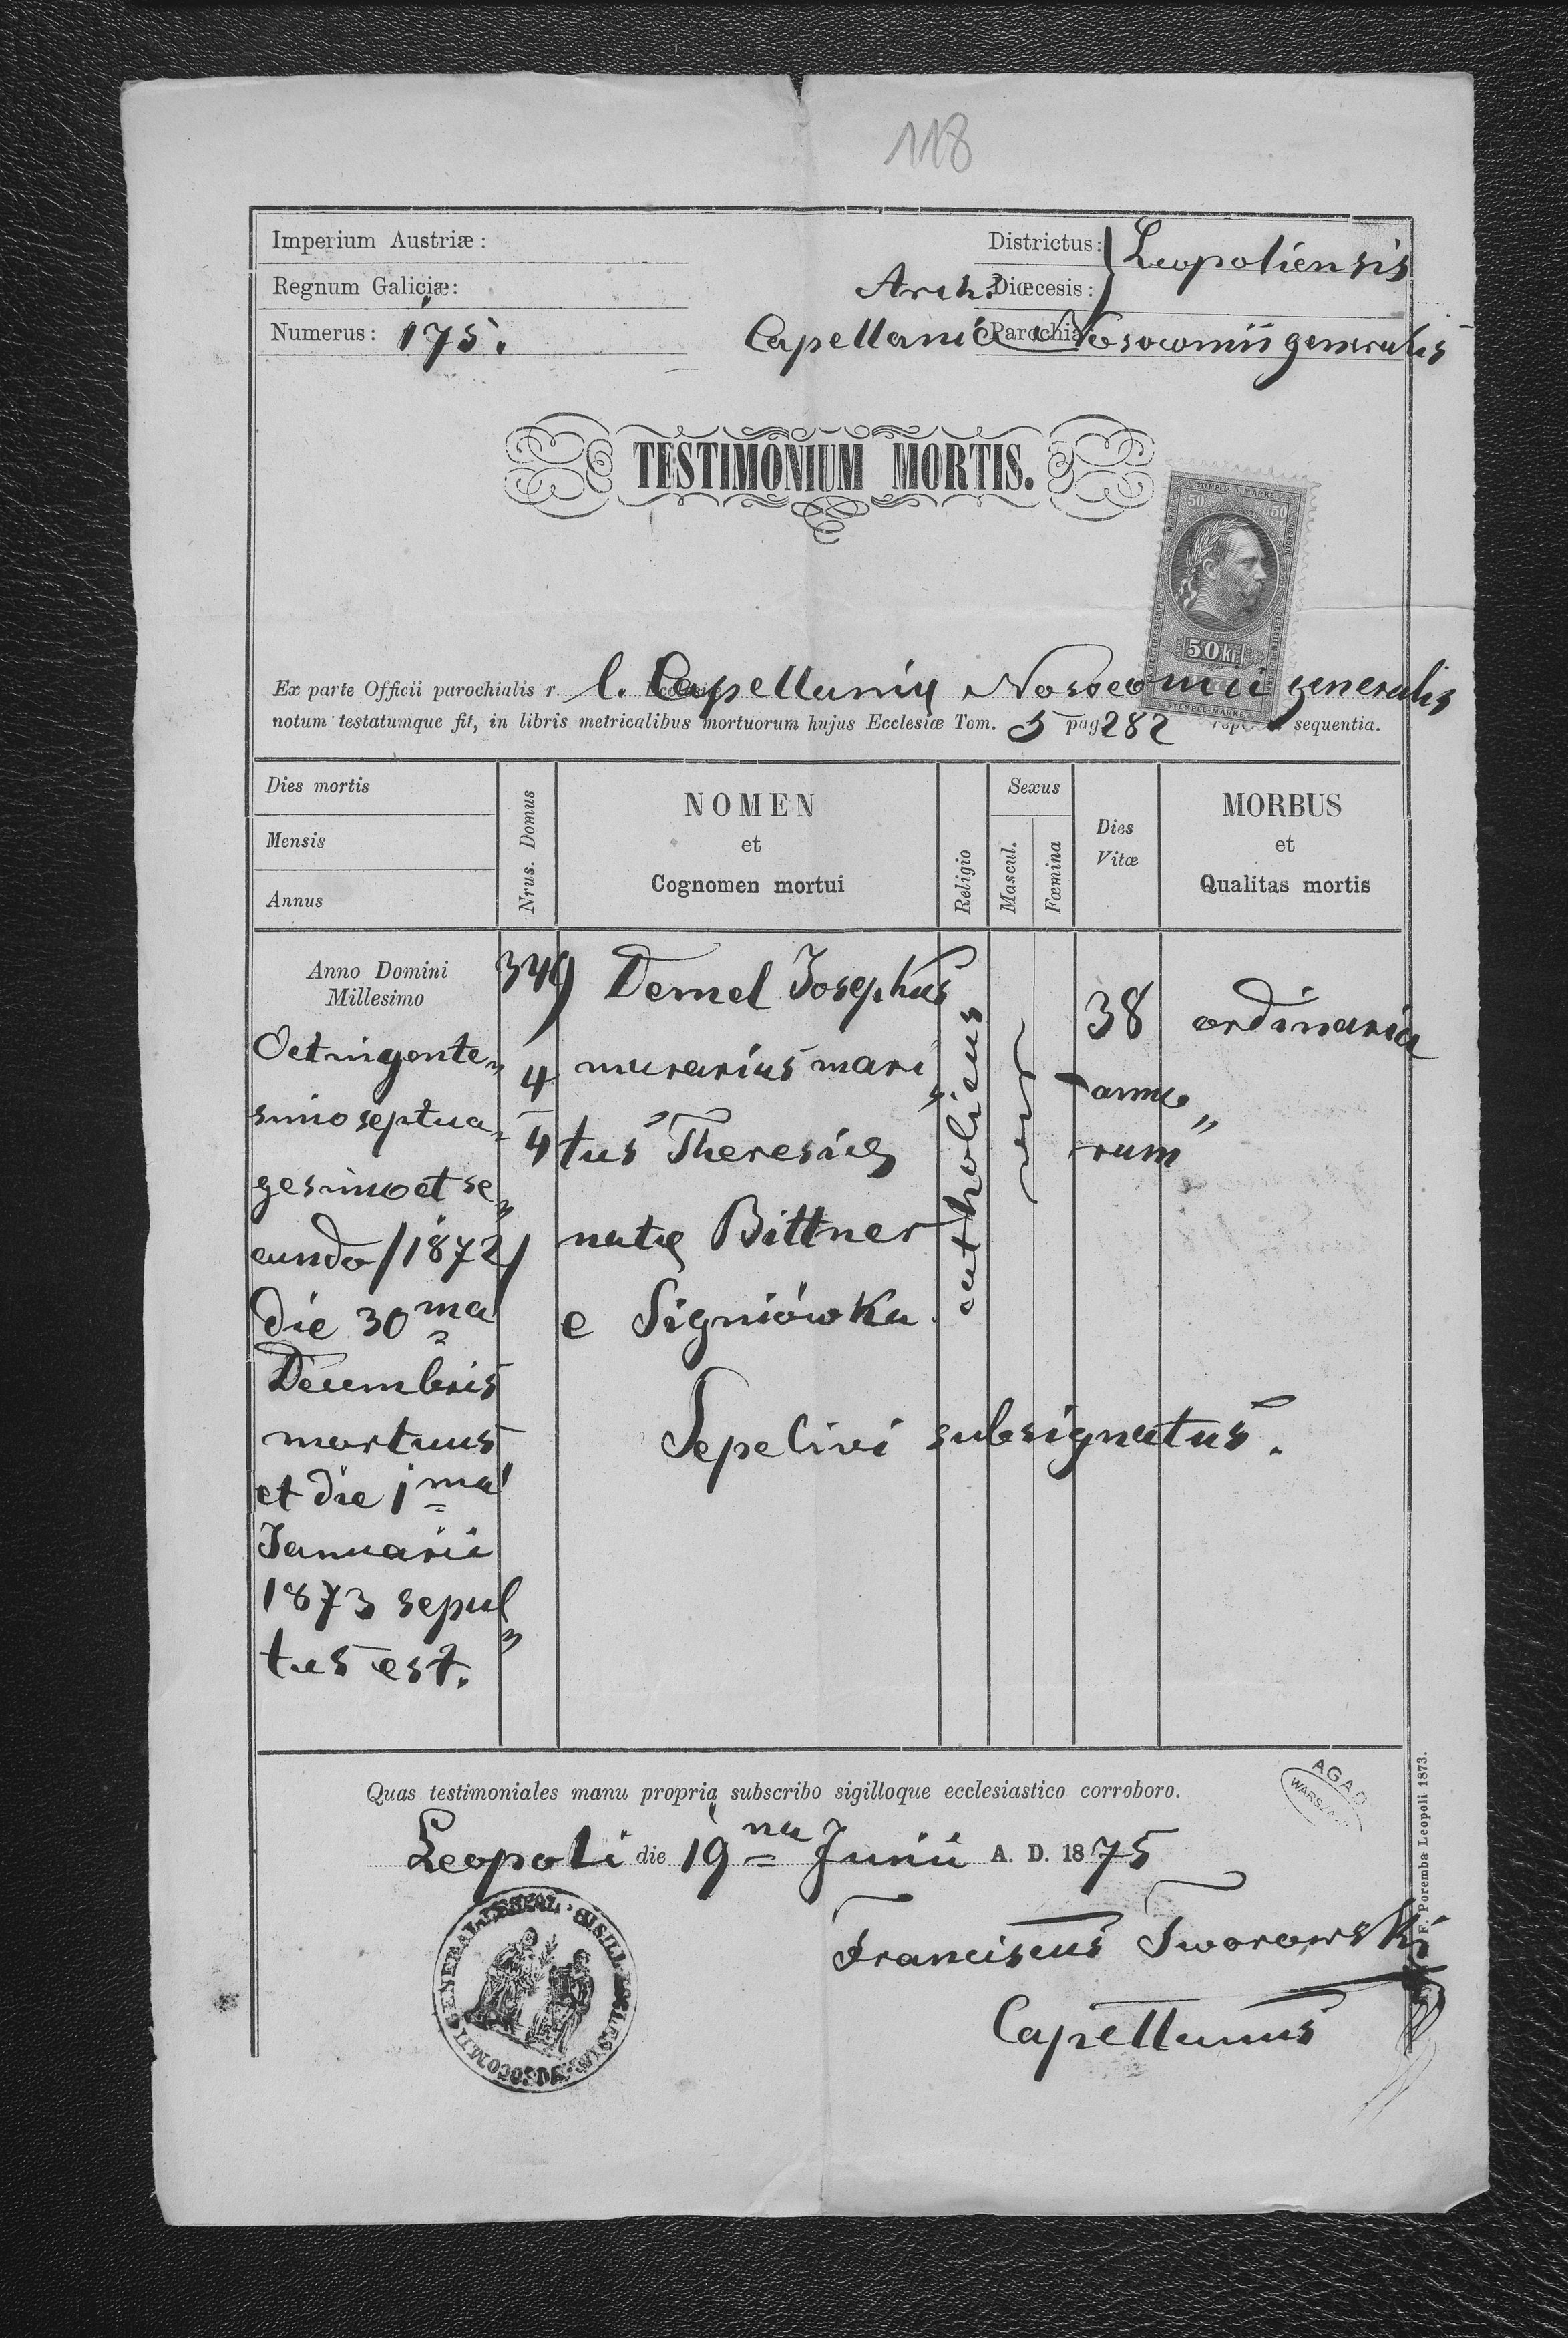 118
Imperium Austriæ:
Regnum Galiciæ:
Numerus: 175.
Districtus: Leopoliensis
Arch. Diœcesis:
Capellania Parochia Nosocomii generalis
TESTIMONIUM MORTIS.
STEMPEL MARKE
50 50
50 kr.
STEMPEL-MARKE
Ex parte Officii parochialis r. l. Capellaniæ Nosocomii generalis
notum testatumque fit, in libris metricalibus mortuorum hujus Ecclesiæ Tom. 5 pag 282 sequentia.
Dies mortis
Mensis
Annus
Nrus. Domus
NOMEN
et
Cognomen mortui
Religio
Sexus
Mascul.
Fœmina
Dies
Vitæ
MORBUS
et
Qualitas mortis
Anno Domini
Millesimo
Octingente„
simo septua„
gesimo et se„
cundo /1872/
die 30ma
Decembris
mortuus
et die 1ma
Januarii
1873 sepul„
tus est.
349
4
4
Demel Josephus
murarius mari„
tus Theresiæ
natæ Bittner
e Signiówka.
catholicus
38
anno„
rum
ordinaria
Sepelivi subsignatus.
Quas testimoniales manu propria subscribo sigilloque ecclesiastico corroboro.
Leopoli die 19na Junii A. D. 1875
Franciscus Tworowski
Capellanus
AGAD
WARSZAWA
F. Poremba Leopoli 1873.